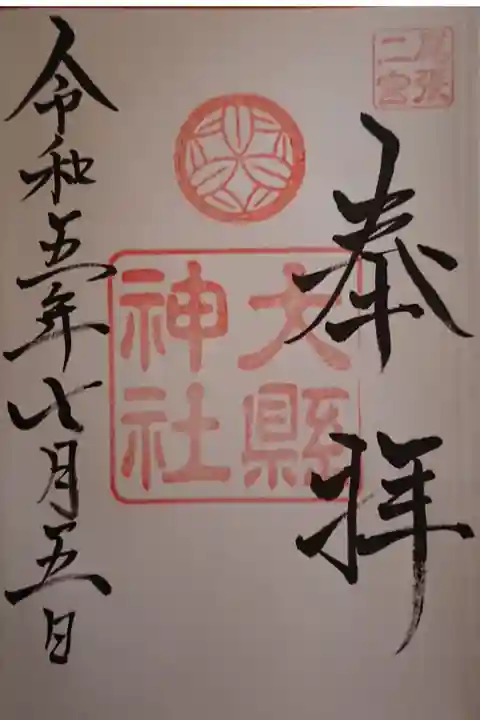 尾張
二宮
奉拝
大縣
神社
令和五年七月五日